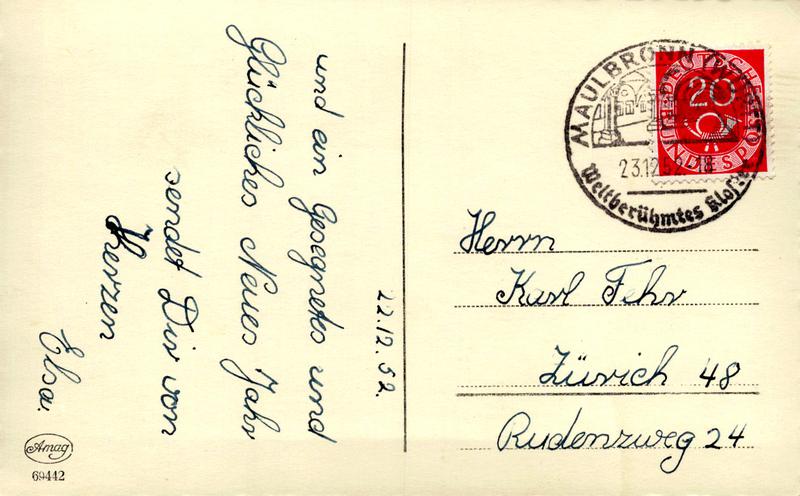 22.12.52.
und ein Gesegnetes und
Glückliches Neues Jahr
sendet Dir von
Herzen
Elsa.
Amag
69442
MAULBRONN (WÜRTT)
23.12.52-18
Weltberühmtes Kloster
DEUTSCHE
BUNDESPOST
20
Herrn
Karl Fehr
Zürich 48
Rudenzweg 24